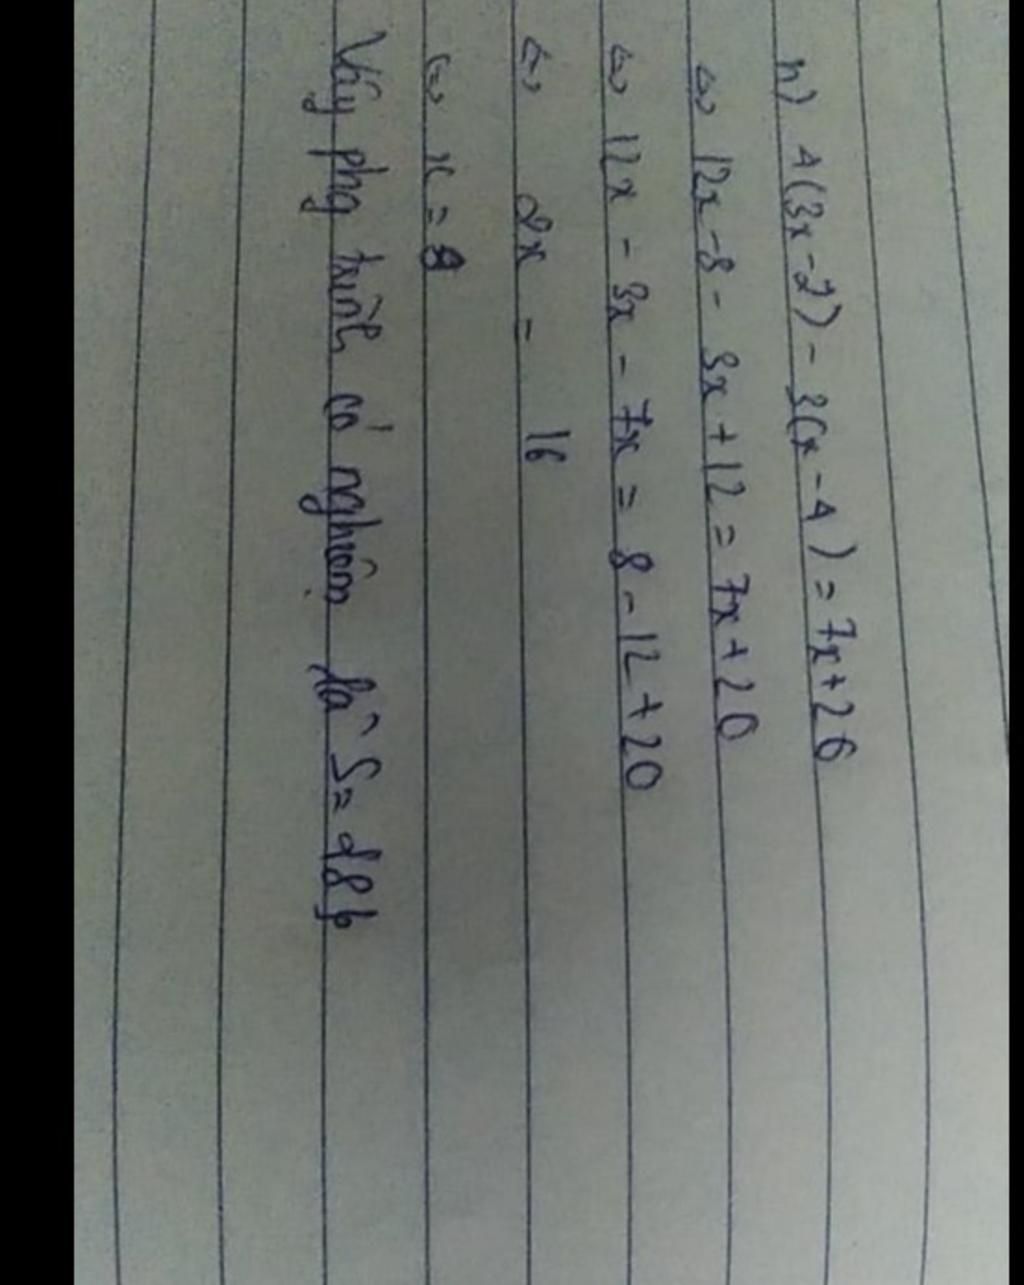 h) 4(3x-2) - 3(x-4) = 7x+20
<=> 12x-8 - 3x+12 = 7x+20
<=> 12x - 3x - 7x = 8-12+20
<=> 2x = 16
<=> x = 8
Vậy phg trình có nghiệm là S={8}